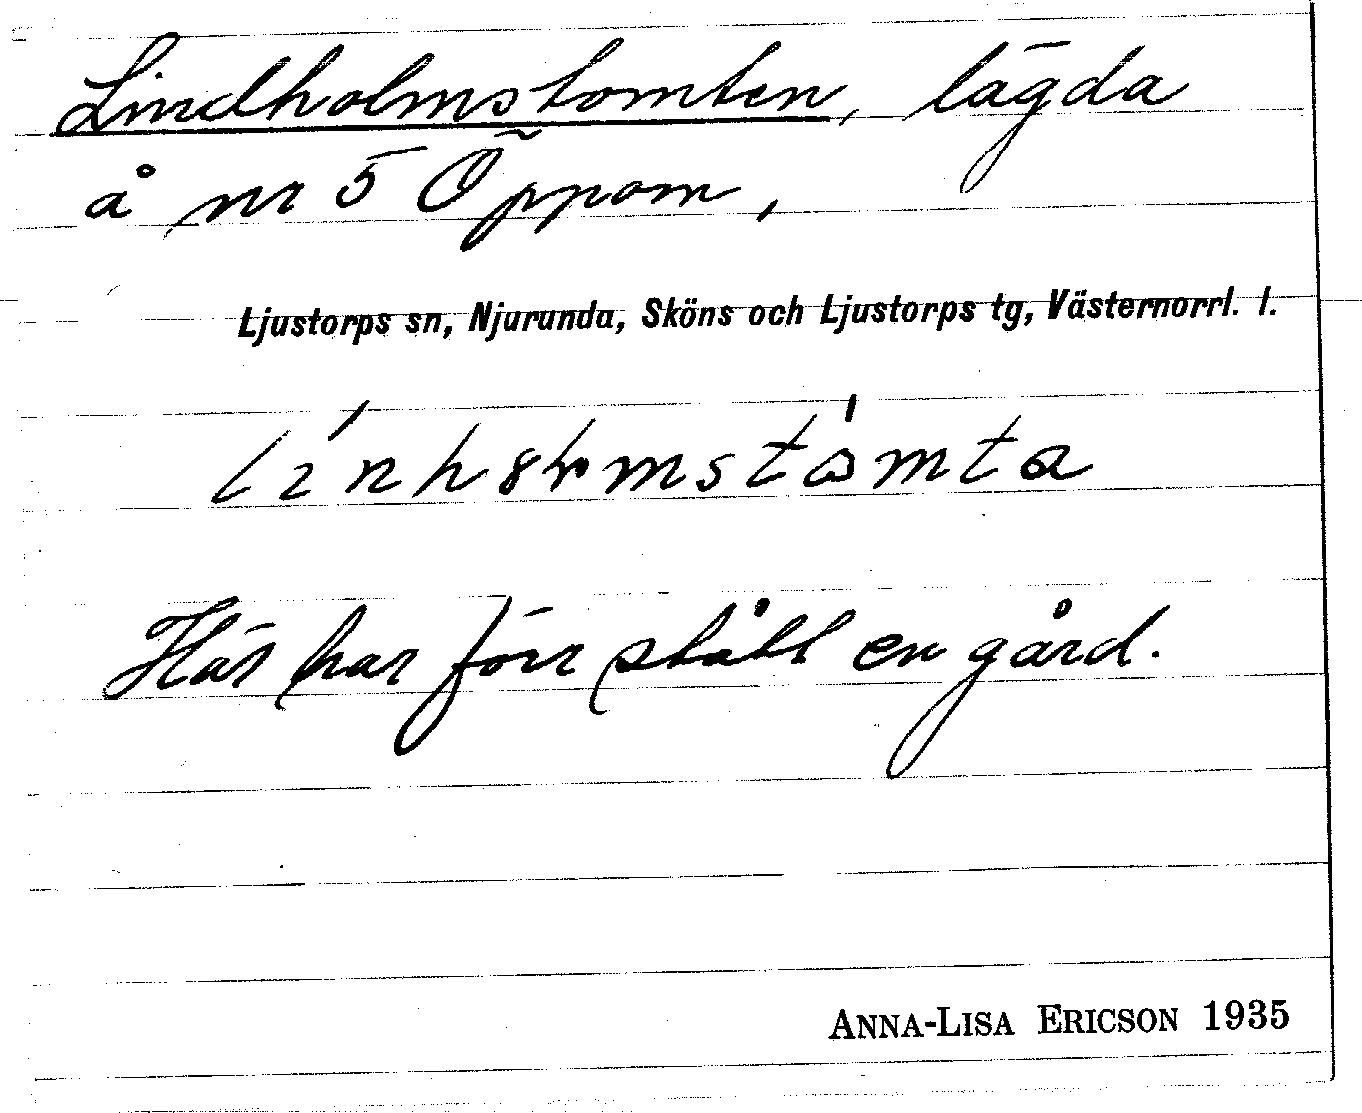 Lindholmstomten, lägda
å nr 5 Öppom,
Ljustorps sn, Njurunda, Sköns och Ljustorps tg, Västernorrl. l.
Här har förr stått en gård.
ANNA-LISA ERICSON 1935